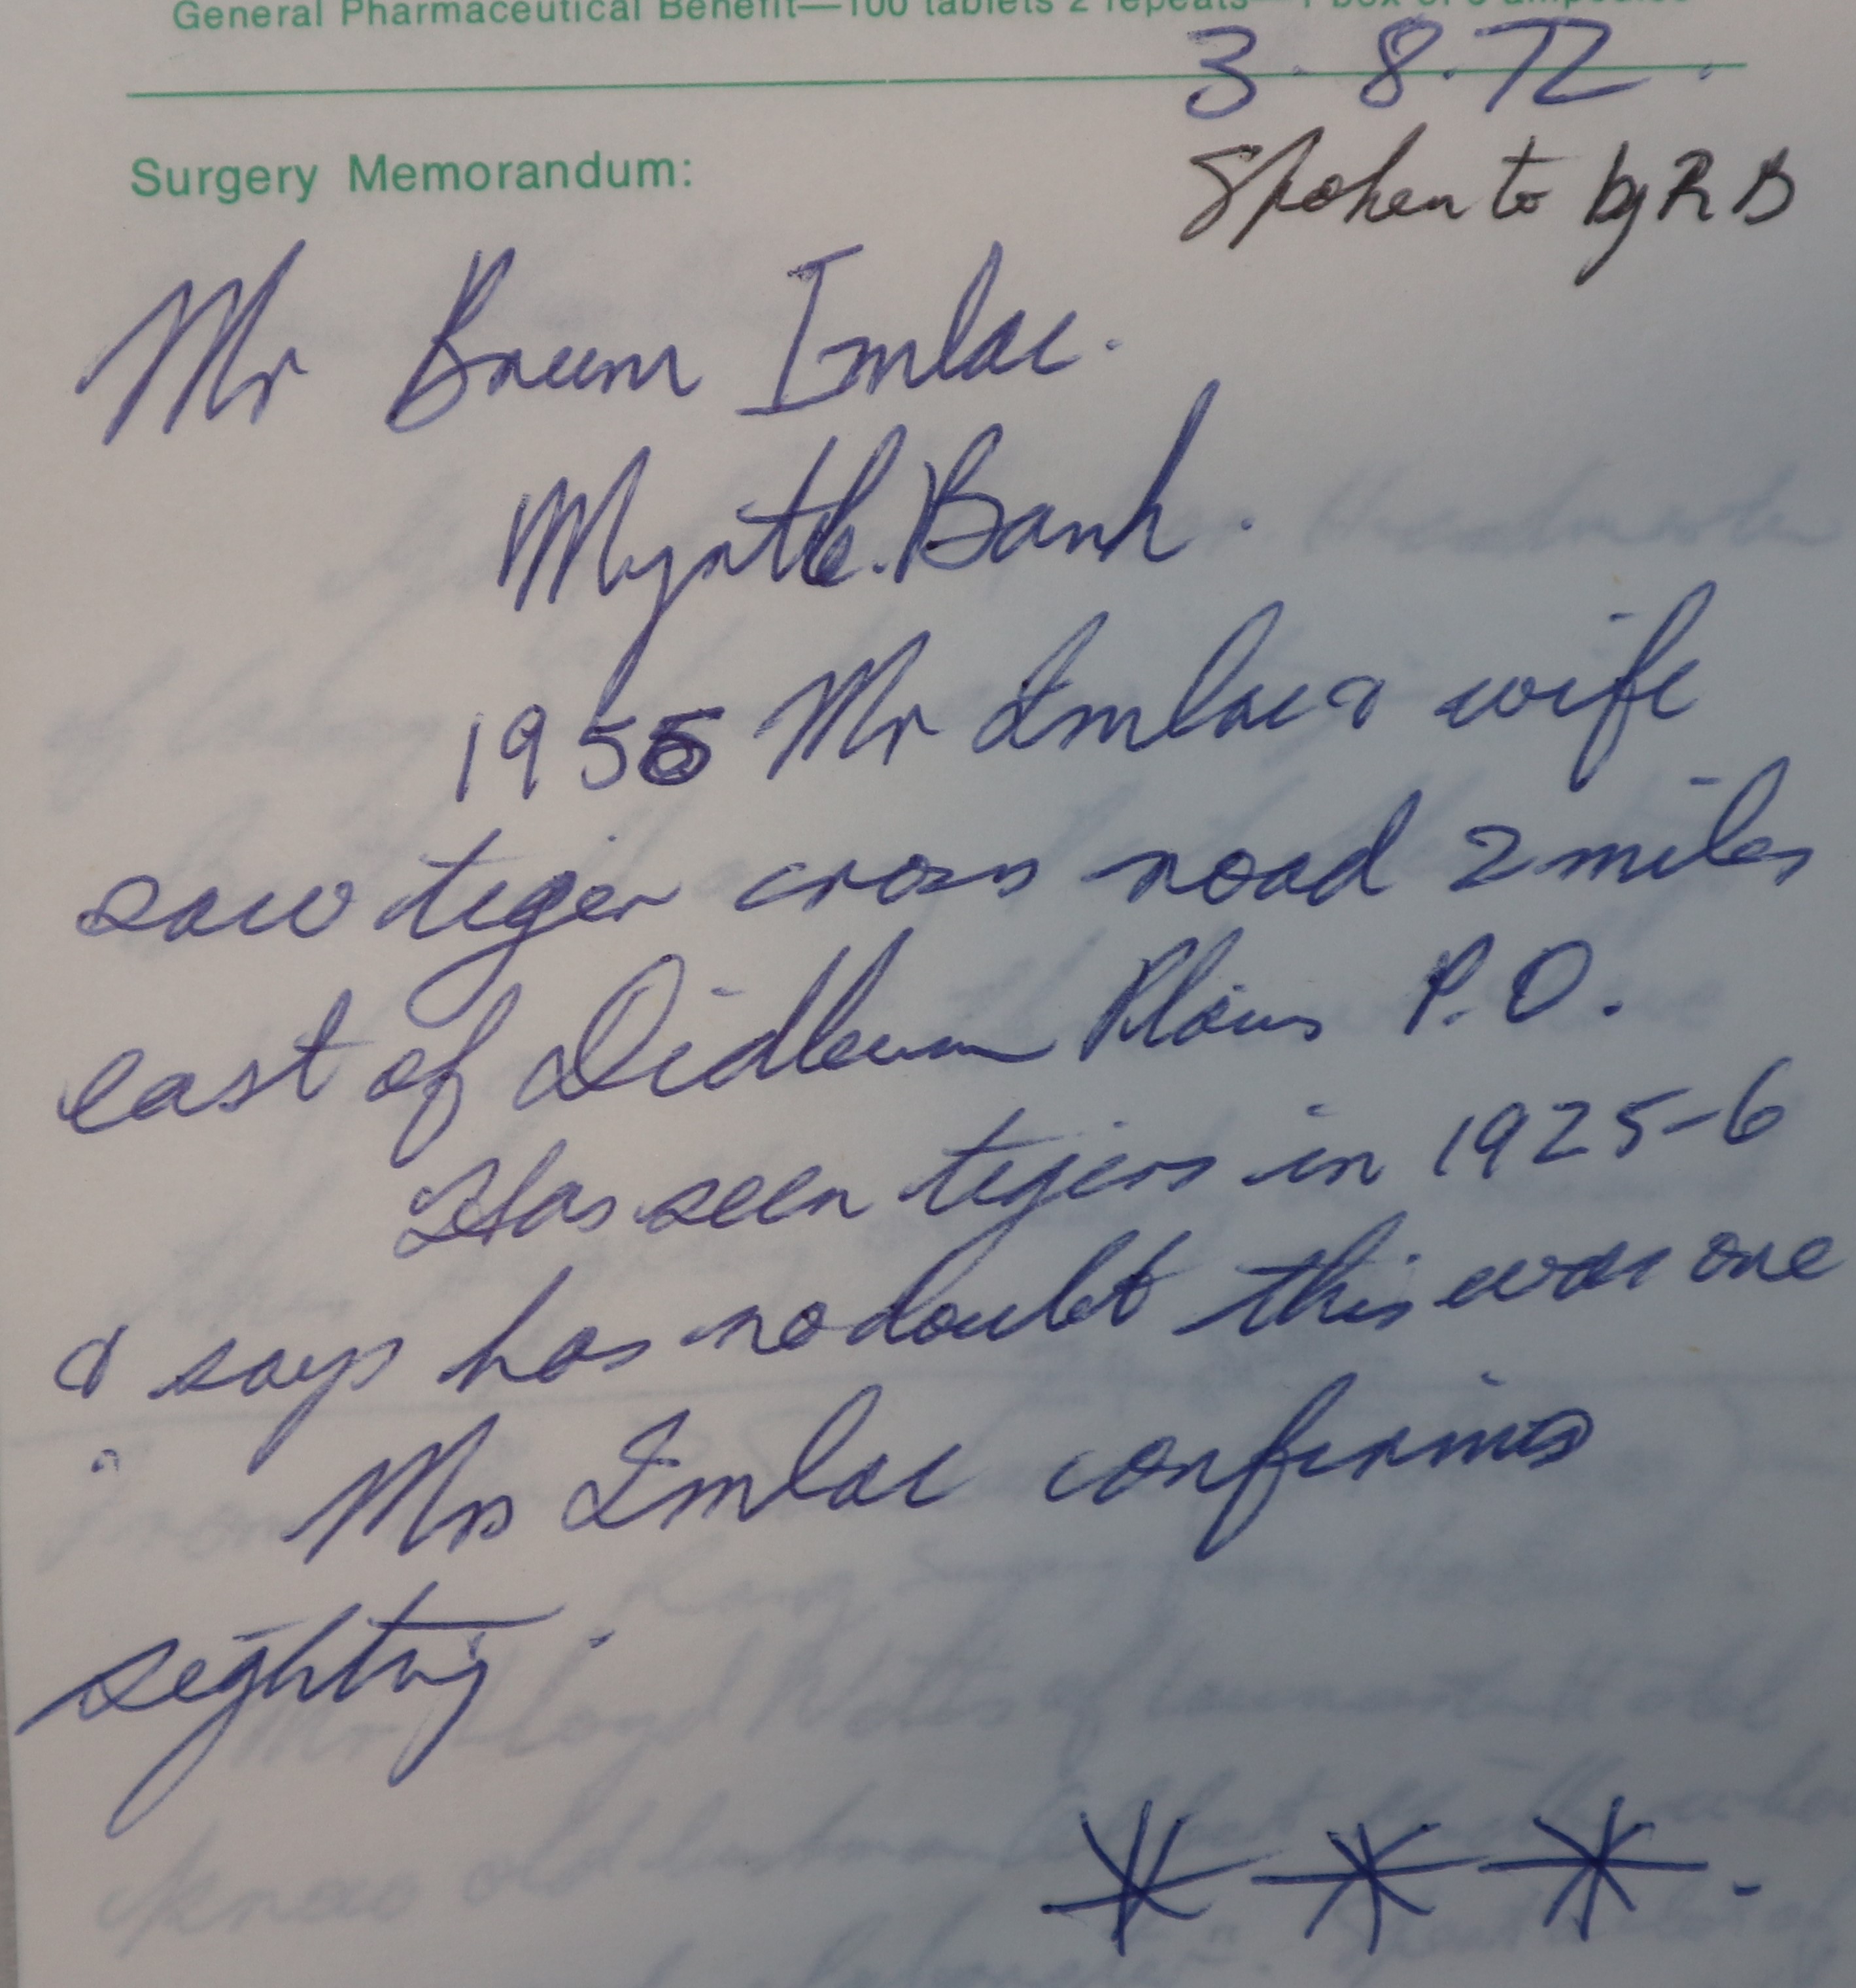 General Pharmaceutical Benefit—100 tablets 2 repeats—1 box of 5 ampoules
3.8.72.
Surgery Memorandum:
Spoken to by R B
Mr Imlac.
Myrtle Bank.
1956 Mr Imlac & wife
saw tiger cross road 2 miles
east of Diddleum Plains P.O.
Has seen tigers in 1925-6
& says has no doubt this was one
Mrs Imlac confirms
sighting.
* * *.